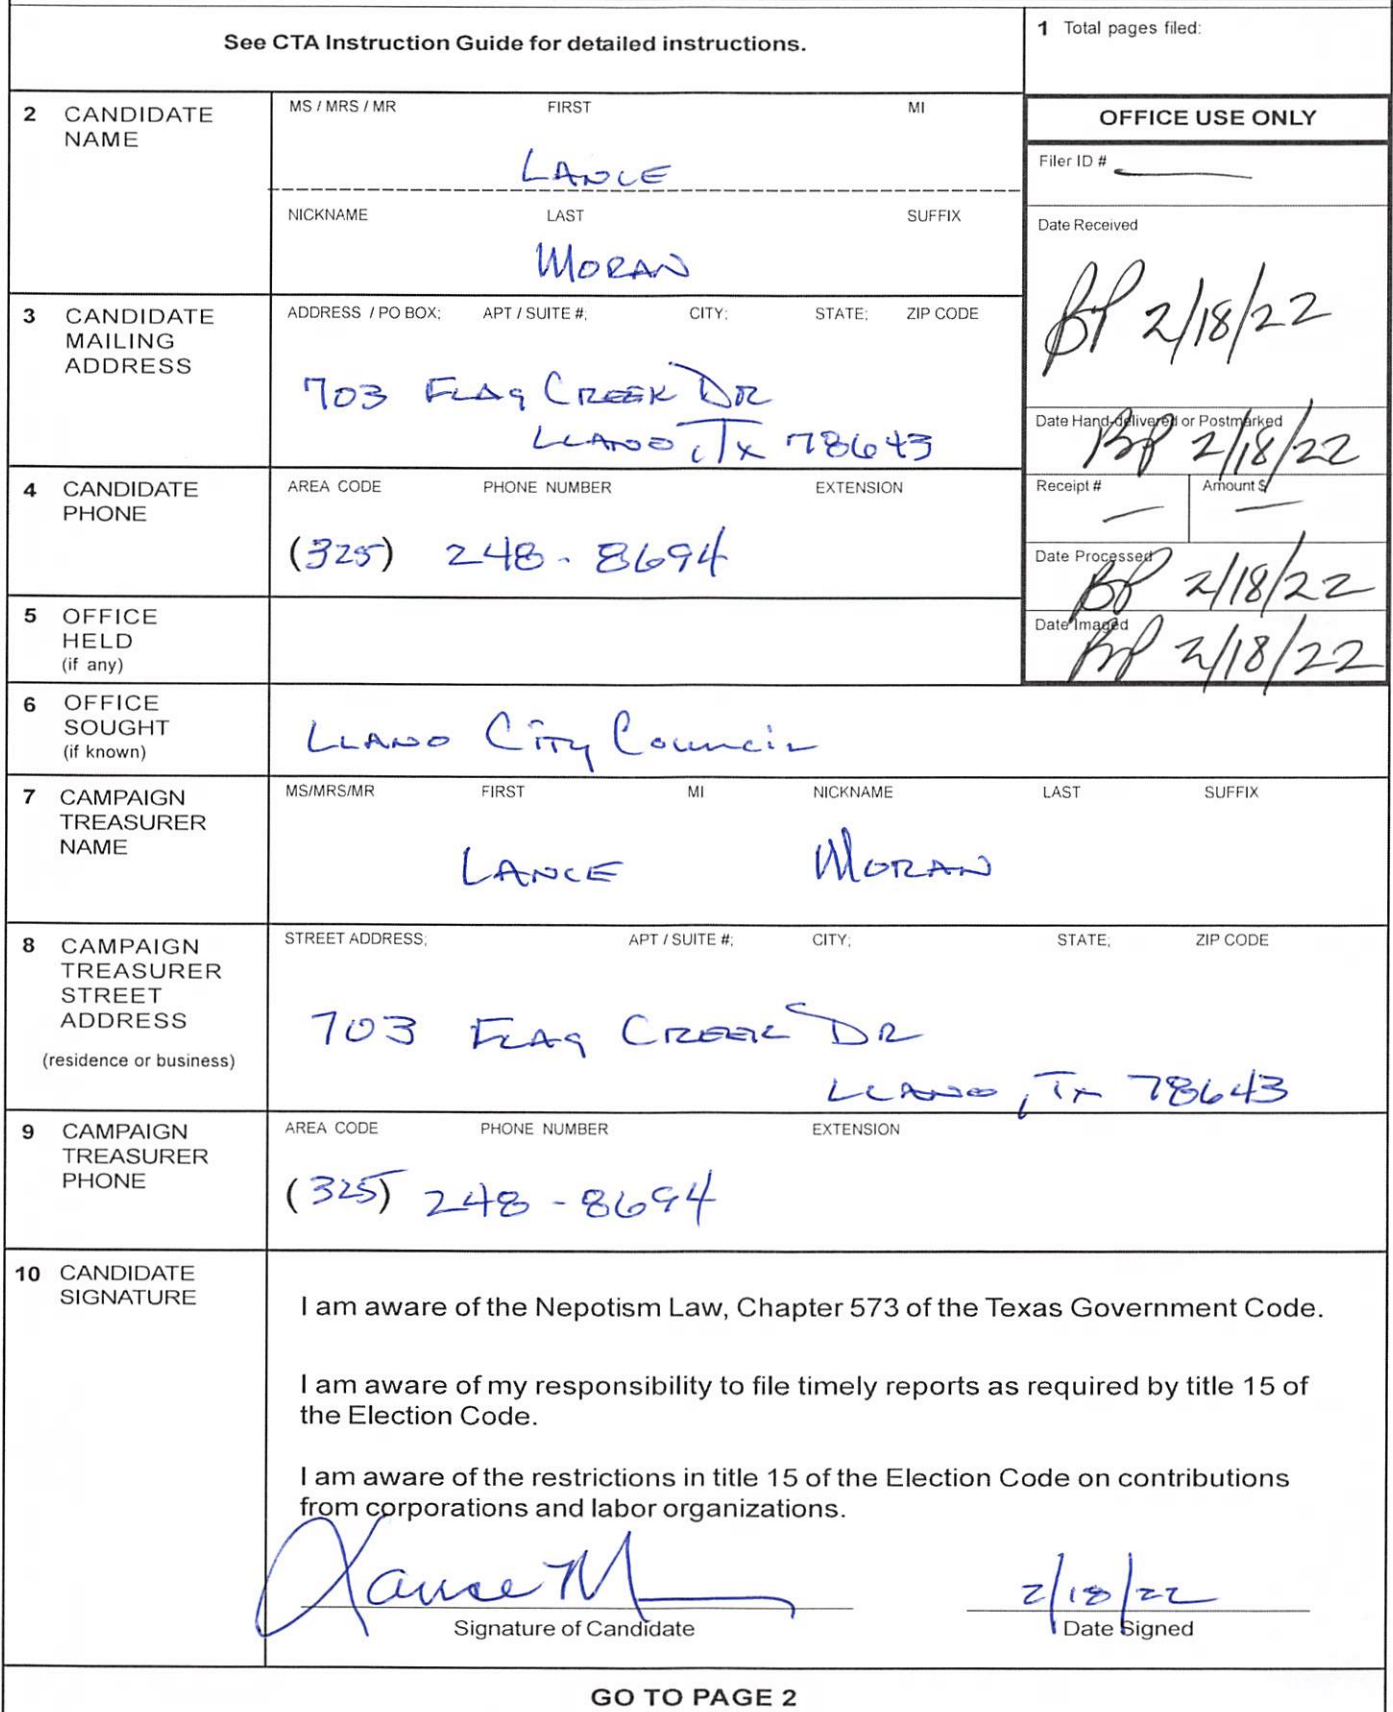 See CTA Instruction Guide for detailed instructions.
1 Total pages filed:
2 CANDIDATE NAME
MS / MRS / MR FIRST MI
LANCE
NICKNAME LAST SUFFIX
MORAN
OFFICE USE ONLY
Filer ID #
Date Received
BP 2/18/22
Date Hand-delivered or Postmarked
BP 2/18/22
Receipt # Amount $
Date Processed
BP 2/18/22
Date Imaged
BP 2/18/22
3 CANDIDATE MAILING ADDRESS
ADDRESS / PO BOX; APT / SUITE #; CITY; STATE; ZIP CODE
703 FLAG CREEK DR
LLANO, TX 78643
4 CANDIDATE PHONE
AREA CODE PHONE NUMBER EXTENSION
(325) 248-8694
5 OFFICE HELD (if any)
6 OFFICE SOUGHT (if known)
LLANO CITY COUNCIL
7 CAMPAIGN TREASURER NAME
MS/MRS/MR FIRST MI NICKNAME LAST SUFFIX
LANCE MORAN
8 CAMPAIGN TREASURER STREET ADDRESS
(residence or business)
STREET ADDRESS; APT / SUITE #; CITY; STATE; ZIP CODE
703 FLAG CREEK DR
LLANO, TX 78643
9 CAMPAIGN TREASURER PHONE
AREA CODE PHONE NUMBER EXTENSION
(325) 248-8694
10 CANDIDATE SIGNATURE
I am aware of the Nepotism Law, Chapter 573 of the Texas Government Code.
I am aware of my responsibility to file timely reports as required by title 15 of
the Election Code.
I am aware of the restrictions in title 15 of the Election Code on contributions
from corporations and labor organizations.
Lance M
2/18/22
Signature of Candidate Date Signed
GO TO PAGE 2